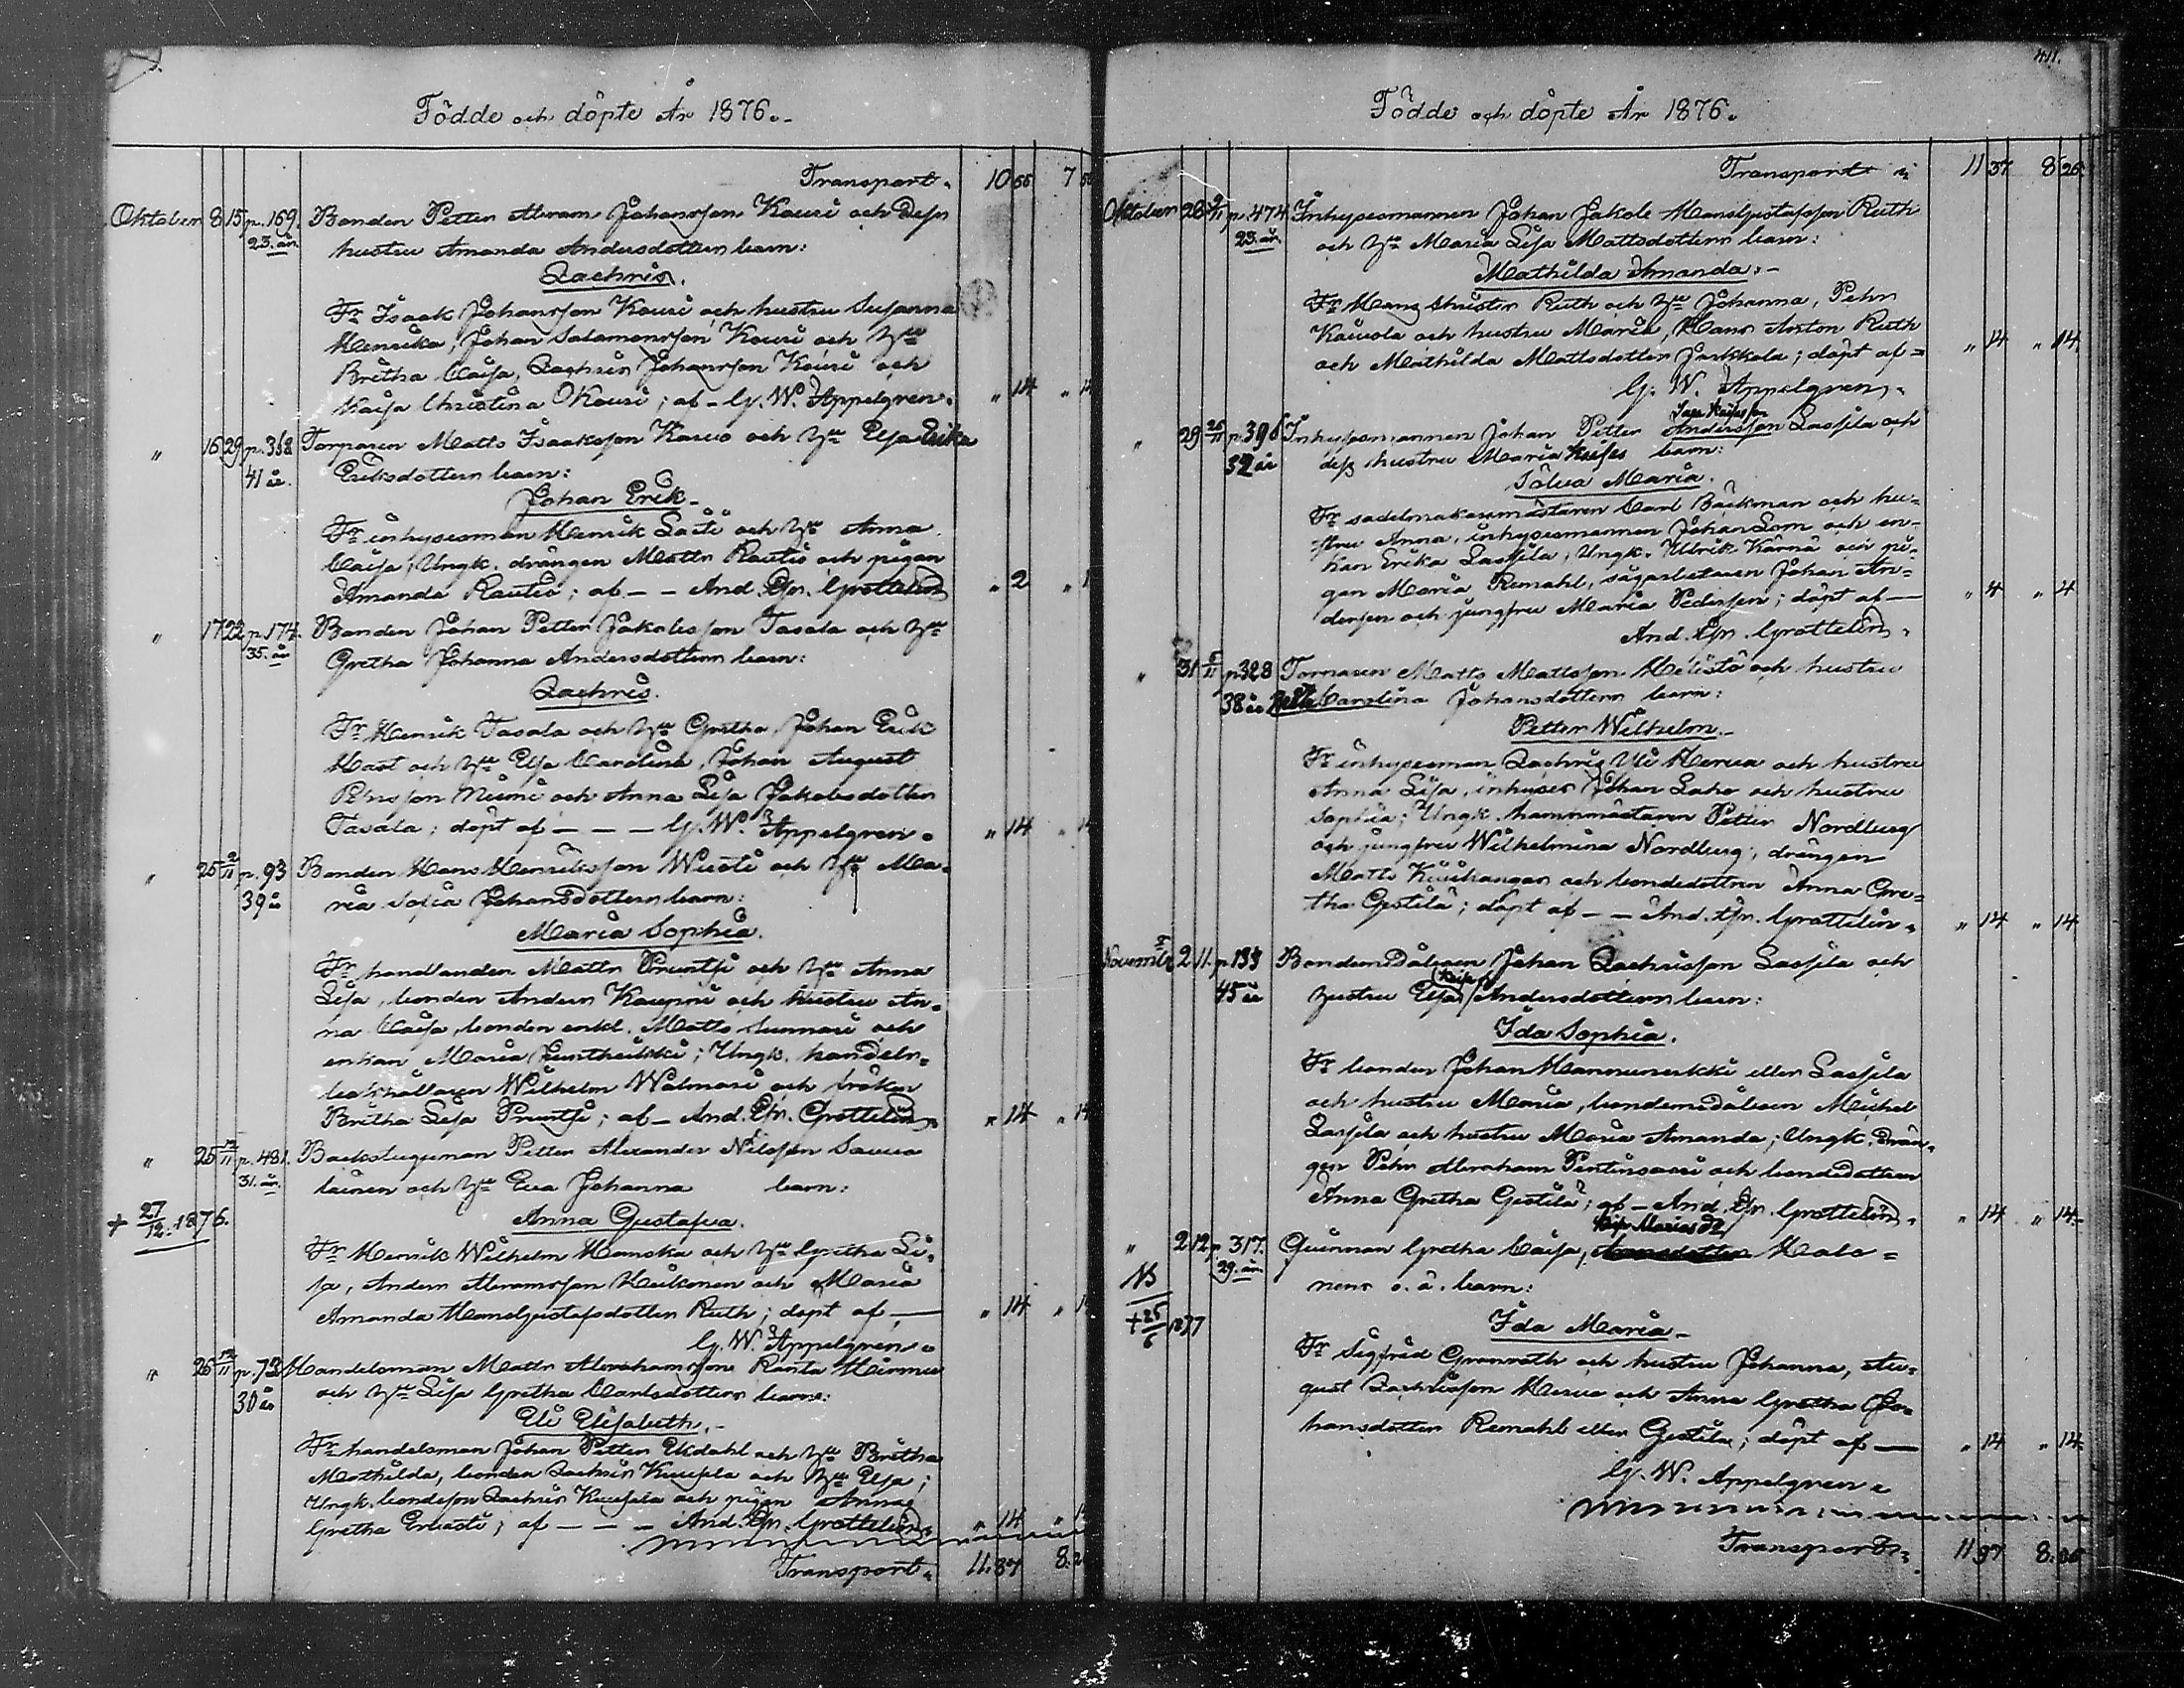 Födde och döpte År 1876.
Transport. 10 55 7
Oktober 8 15 p. 169. Bonden Petter Abram Johansson Kouri och dess
23. år. hustru Amanda Andersdotters barn:
Zachris.
Fr. Isaak Johansson Kouri och hustru Susanna
Henrika, Johan Salomonsson Kouri och h:u
Britha Caisa, Zachris Johansson Kouri och
Kaisa Christina Kouri; af - G. W. Appelgren. " 14 "
" 16 29 p. 358 Torparen Matts Isaaksson och h:u Elsa Erika
41 år. Eriksdotters barn:
Johan Erik.
Fr. inhysesman Henrik och h:u Anna
Caisa, Ungk. drängen Matts Rautio och pigan
Amanda Rautio; af - - And. Joh. Grottelin " 2 "
" 17 22 p. 174. Bonden Johan Petter Jakobsson Tasala och h:u
35. år Gretha Johanna Andersdotters barn:
Zachris.
Fr. Henrik Tasala och h:u Gretha, Johan Erik
Mast och h:u Elsa Carolina, Johan August
Pehrsson Niemi och Anna Lisa Jakobsdotter
Tasala; döpt af - - - G. W. Appelgren. " 14 "
" 25 2/11 p. 93 Bonden Hans Henriksson och h:u Ma-
39 år ria Sofia Johansdotters barn:
Maria Sophia.
Fr. handlanden Matts Pruntsi och h:u Anna
Lisa, bonden Anders Kauppi och hustru An-
na Caisa, bonden enkl. Matts och
enkan Maria; Ungk. handels-
bokhållaren Wilhelm Walmari och fröken
Britha Lisa Pruntsi; af - And. Joh. Grottelin. " 14 "
" 25 12/11 p. 481. Backstuguman Petter Alexander Nilsson
31. år. lainen och h:u Eva Johanna barn:
+ 27/12. 1876. Anna Gustafva.
Fr. Henrik Wilhelm Hanska och h:u Gretha Li-
sa, Anders Abramsson Heikonen och Maria
Amanda Hansgustafsdotter Ruth; döpt af — " 14 "
G. W. Appelgren.
" 26 12/11 p. 73 Handelsman Matts Abrahamsson Ranta
30 år och h:u Lisa Gretha Carlsdotters barn:
Eli Elisabeth.
Fr. handelsman Johan Petter Ekdahl och h:u Britha
Mathilda, bonden Zachris och h:u Elsa;
Ungk. bondeson Zachris och pigan Anna
Gretha; af - - - And. Joh. Grottelin. " 14 "
Transport. 11. 37 8.
411.
Födde och döpte År 1876.
Transport 11 37 8 26
Oktober 28 p. 474 Inhysesmannen Johan Jakob Hansgustafsson Ruth
23. år. och h:u Maria Lisa Mattsdotters barn:
Mathilda Amanda.
Fr. Hans Christer Ruth och h:u Johanna, Pehr
och hustru Maria, Hans Anton Ruth
och Mathilda Mattsdotter Junkkala; döpt af " 14 " 14
G. W. Appelgren.
" 29 26/11 p. 396 Inhysesmannen Johan Petter Andersson Lassila och
32 år dess hustru Maria barn:
Maria.
Fr. sadelmakaremästaren Carl Bäckman och hu-
stru Anna, inhysesmannen Johan och en-
kan Erika Lassila, Ungk. Ulrik Kärnä och pi-
gan Maria Remahl, sågarbetaren Johan An-
dersen och jungfru Maria Pedersen; döpt af — " 4 " 4
And. Joh. Grottelin.
" 31 5/11 p 328 Torparen Matts Mattsson och hustru
38 år Carolina Johansdotters barn:
Petter Wilhelm.
Fr. inhysesman Zachris Yli Herva och hustru
Anna Lisa, inhyses Johan Laho och hustru
Sophia; Ungk. hamnmästaren Petter Nordberg
och jungfru Wilhelmina Nordberg, drängen
Matts och bondedottren Anna Gre-
tha Gestilä; döpt af - - And. Joh. Grottelin. " 14 " 14
November 2 11. p 135 Bondemågen Johan Zachrisson Lassila och
45 år hustru Elsa Andersdotters barn:
Ida Sophia.
Fr. bonden Johan eller Lassila
och hustru Maria, bondemågen Michel
Lassila och hustru Maria Amanda; Ungk. drän-
gen Pehr Abraham Pentinsaari och bondedottren
Anna Gretha Gestilä; af - And. Joh. Grottelin. " 14 " 14
" 2 12 p. 317. Qvinnan Gretha Caisa, Halo-
29. år. nens o. ä. barn:
NB
+ 25/6 1877 Ida Maria.
Fr. Sigfrid Granroth och hustru Johanna, Au-
gust Zachrisson Herva och Anna Gretha Jo-
hansdotter Remahl eller Gestilä; döpt af — " 14 " 14
G. W. Appelgren.
Transport. 11 97 8.